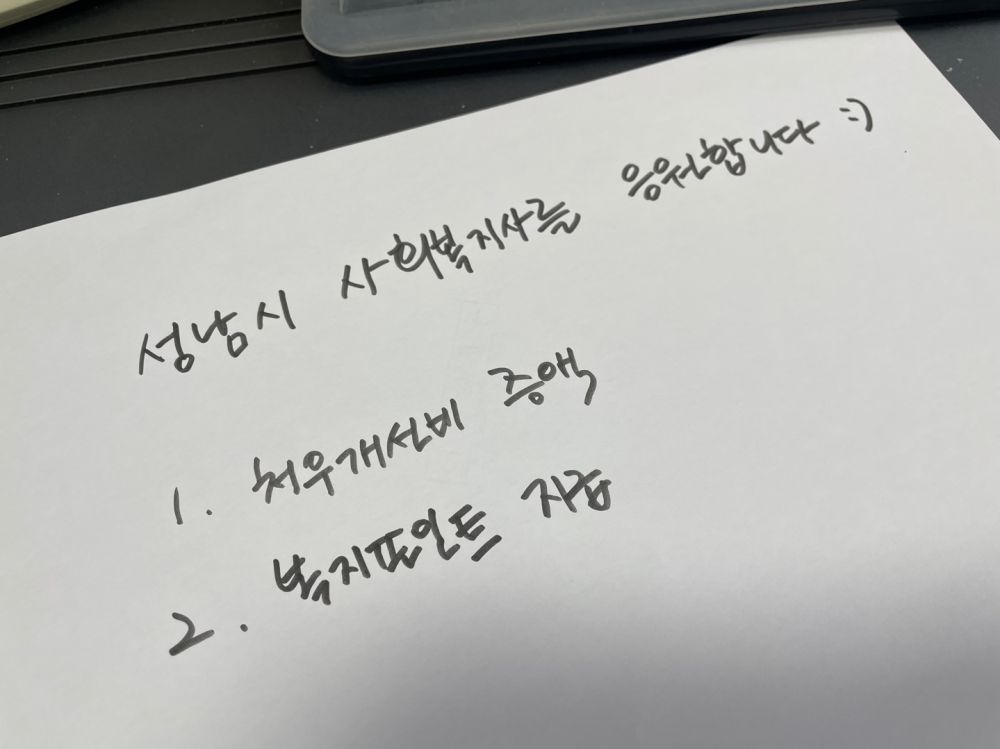 성남시 사회복지사를 응원합니다 :)
1. 처우개선비 증액
2. 복지포인트 지급